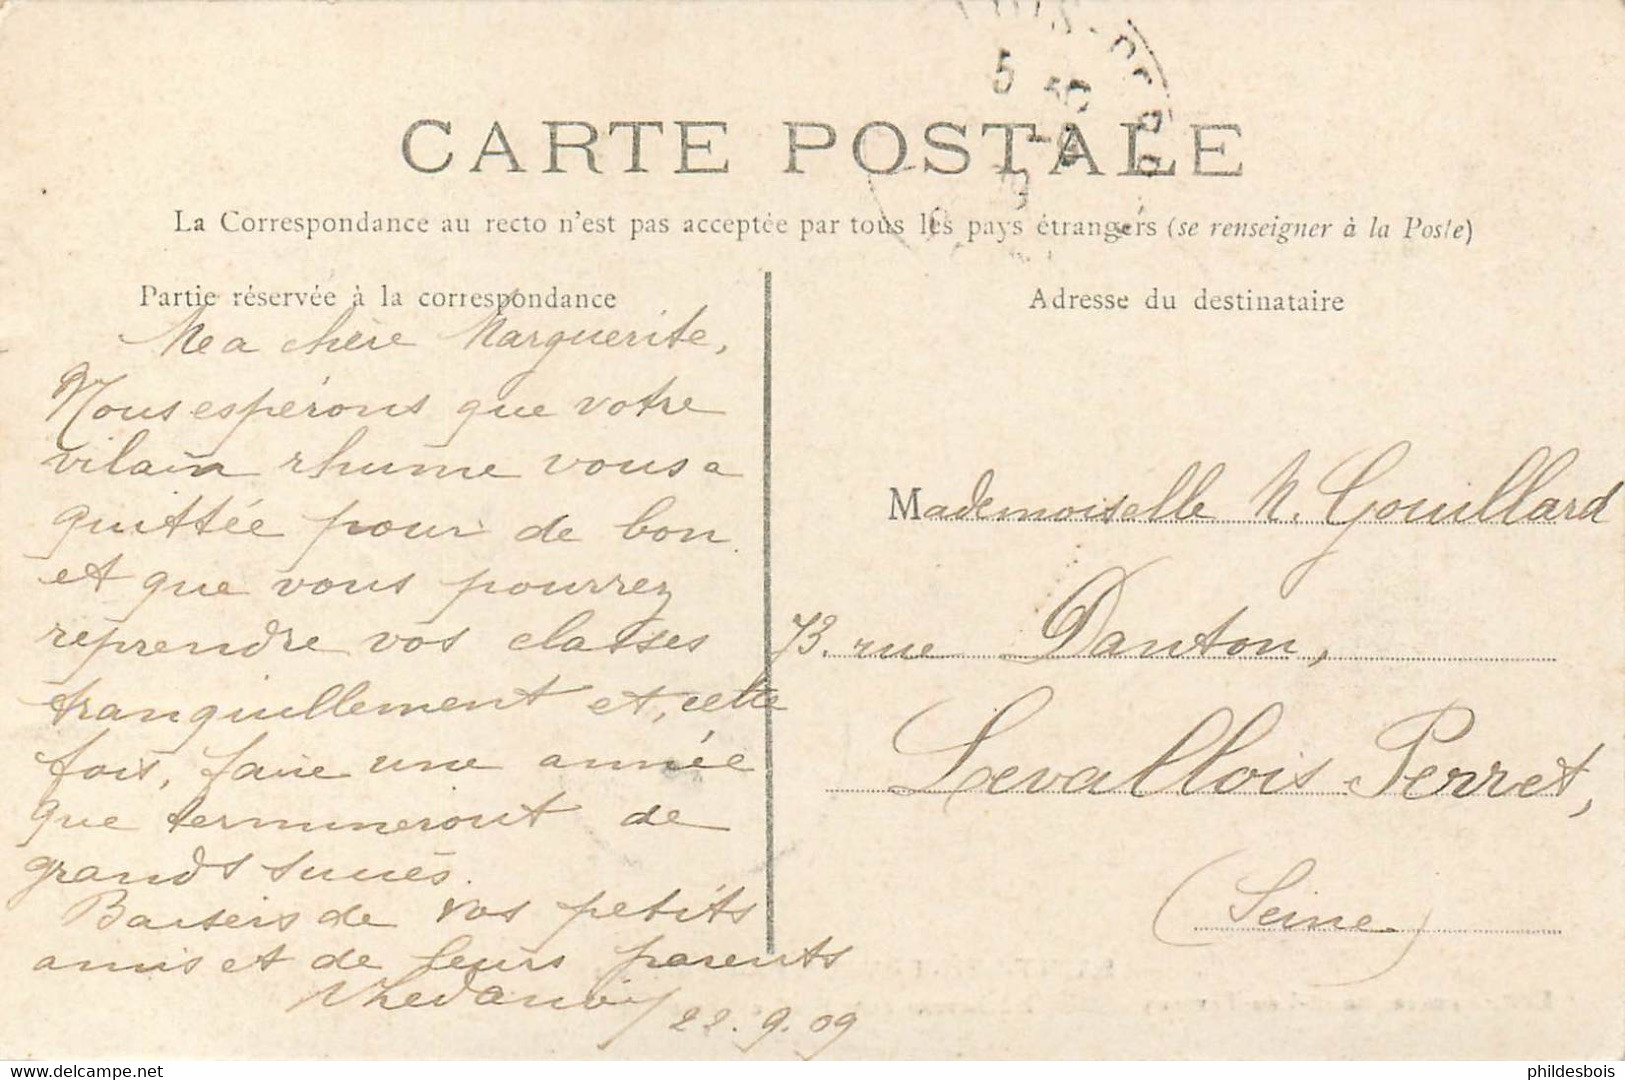 CARTE POSTALE
La Correspondance au recto n'est pas acceptée par tous les pays étrangers (se renseigner à la Poste)
Partie réservée à la correspondance
Mea chère Marguerite,
Nous espérons que votre
vilain rhume vous a
quittée pour de bon
et que vous pourrez
reprendre vos classes
tranquillement et, cette
fois, faire une année
que termineront de
grands succès.
Baisers de vos petits
amis et de leurs parents
22.9.09
Adresse du destinataire
Mademoiselle M. Gouillard
73. rue Danton,
Levallois-Perret,
(Seine.)
delcampe.net
phildesbois